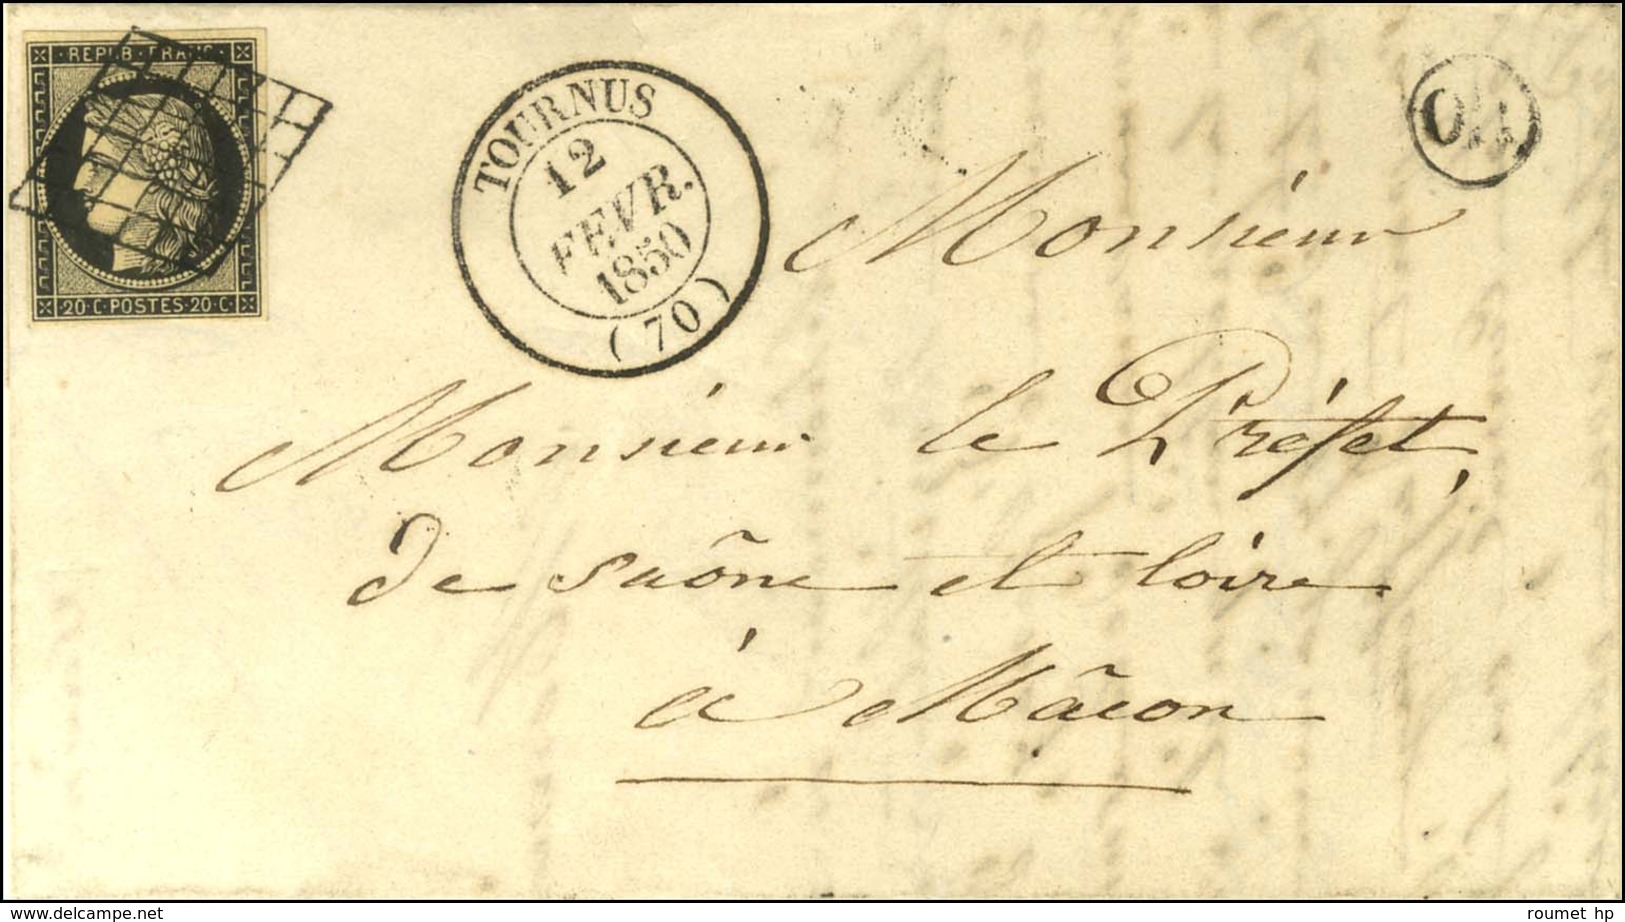 REPUB·FRANC·
20·C·POSTES·20·C·
TOURNUS
12
FEVR.
1850
(70)
Monsieur
Monsieur le Préfet,
de saône et loire
à Mâcon
www.delcampe.net
roumet hp